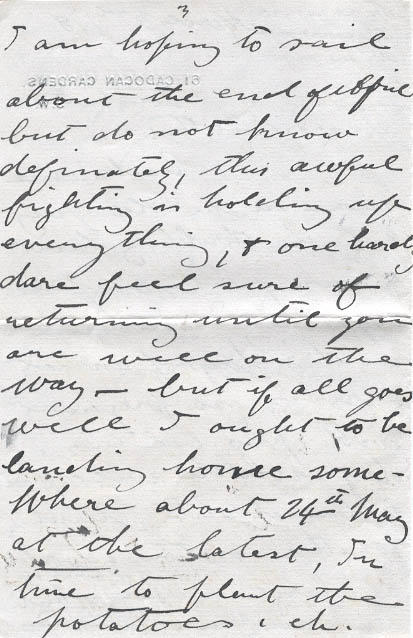 3
I am hoping to sail
61, CADOGAN GARDENS.
about the end of April
but do not know
definately, this awful
fighting is holding up
everything, & one hardly
dare feel sure of
returning until you
are well on the
way – but if all goes
well I ought to be
landing home some-
where about 24th May
at the latest, In
time to plant the
potatoes, eh.